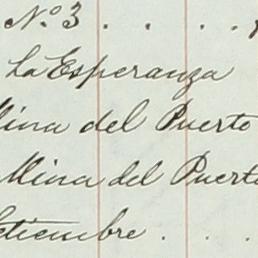 No. 3 . . . .
La Esperanza
Mina del Puerto
Mina del Puerto
Setiembre . . .